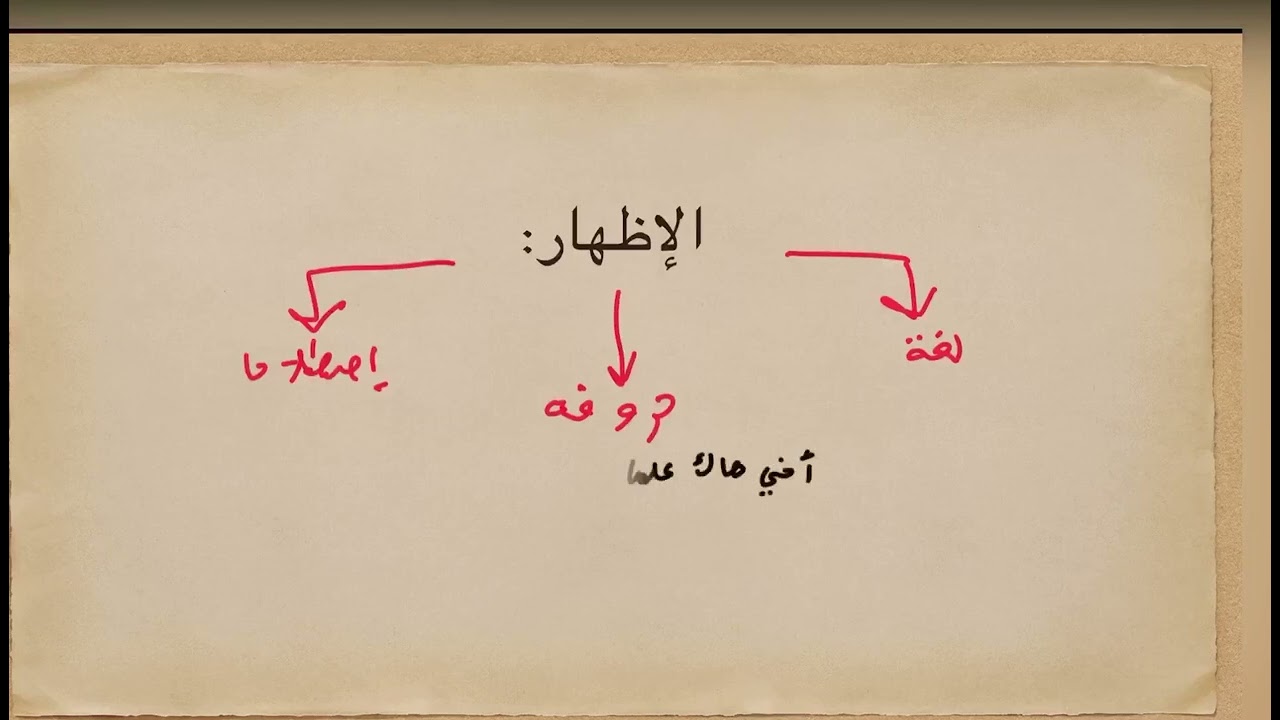 الإظهار:
لغة
إصطلاحا
حروفه
أخي هاك علما